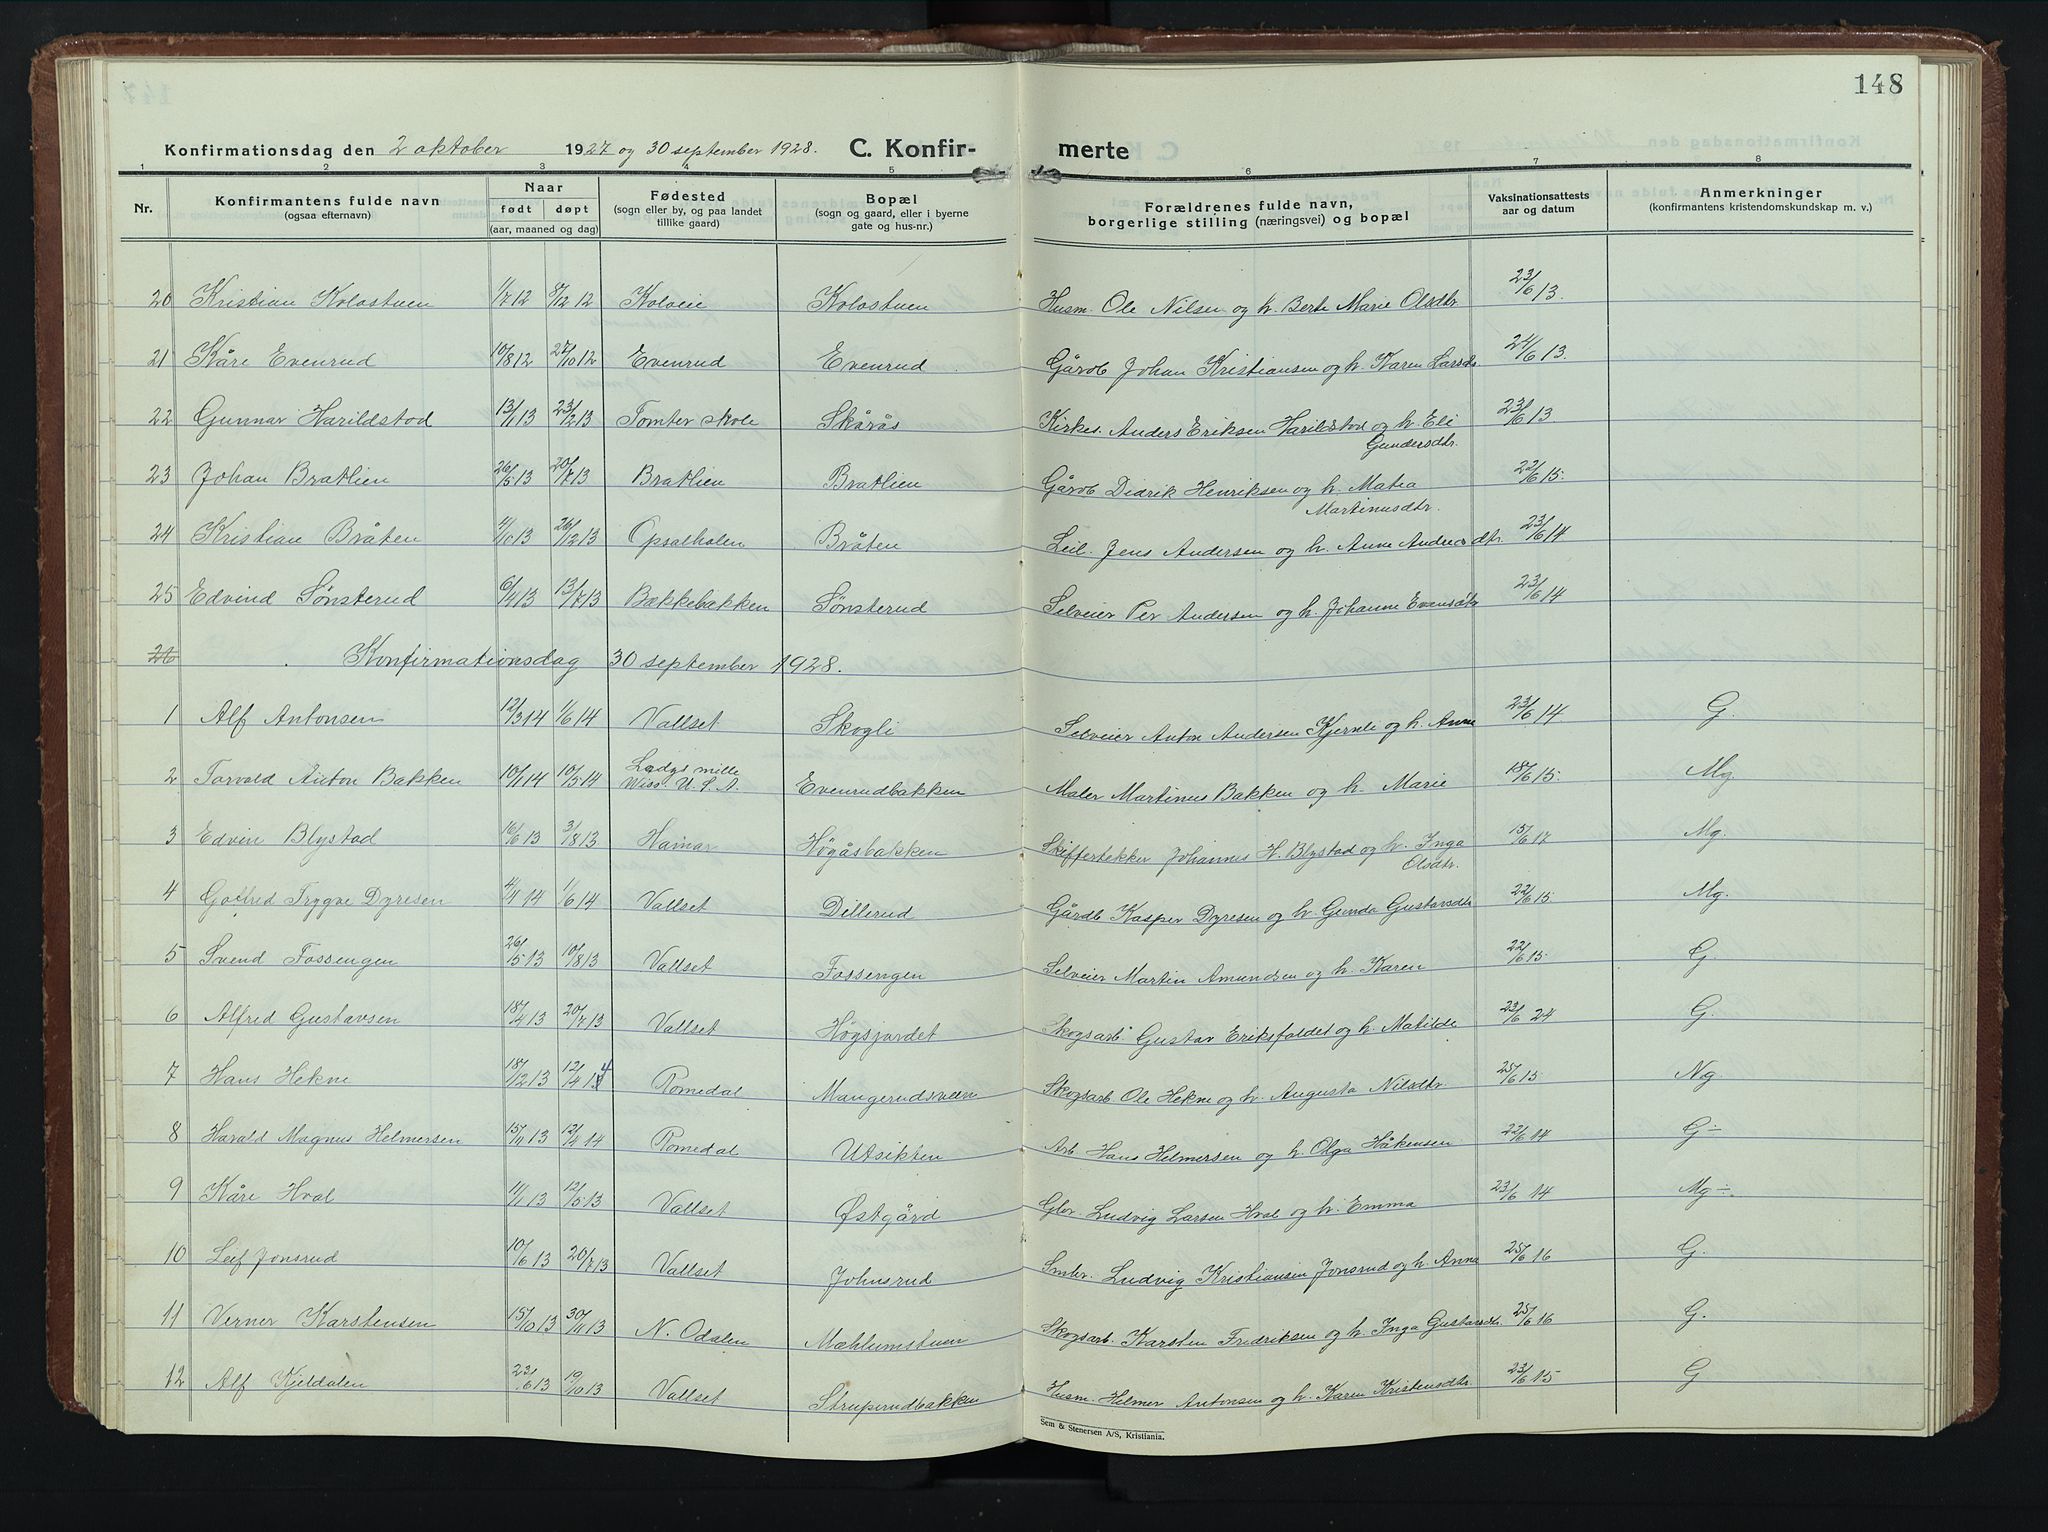 148
Konfirmationsdag den 2 oktober 1927 og 30 september 1928. C. Konfir- merte
1 2 3 4 5 6 7 8
Nr. Konfirmantens fulde navn (ogsaa efternavn) Naar født døpt (aar, maaned og dag) Fødested (sogn eller by, og paa landet tillike gaard) Bopæl (sogn og gaard, eller i byerne gate og hus-nr.) Forældrenes fulde navn, borgerlige stilling (næringsvei) og bopæl Vaksinationsattests aar og datum Anmerkninger (konfirmantens kristendomskundskap m. v.)
20 Kristian Kolostuen 1/7 12 8/12 12 Kolveie Kolostuen Husm. Ole Nilsen og h. Berte Marie Olsdtr 23/6 13.
21 Kåre Evenrud 10/8 12 27/10 12 Evenrud Evenrud Gårdb Johan Kristiansen og h. Karen Larsdtr 24/6 13.
22 Gunnar Harildstad 13/1 13 23/2 13 Tomter skole Skårås Kirkes. Anders Eriksen Harildstad og h. Eli Gundersdtr. 23/6 13.
23 Johan Bratlien 26/5 13 20/7 13 Bratlien Bratlien Gårdb Didrik Henriksen og h. Matea Martinusdtr. 22/6 15.
24 Kristian Bråten 4/10 13 26/12 13 Opsalholen Bråten Leil. Jens Andersen og h. Anne Andresdtr. 23/6 14
25 Edvind Sønsterud 6/4 13 13/7 13 Bækkebakken Sønsterud Selveier Per Andersen og h. Johanne Evensdtr 23/6 14
26 Konfirmationsdag 30 september 1928.
1 Alf Antonsen 12/3 14 1/6 14 Vallset Skogli Selveier Anton Andersen Kjernli og h. Anne 23/6 14 G.
2 Torvald Anton Bakken 10/1 14 10/5 14 Ladysmille Wiss. U.S.A. Evenrudbakken Maler Martinus Bakken og h. Marie 18/6 15. Mg.
3 Edvin Blystad 16/6 13 3/8 13 Hamar Høgåsbakken Skiffertekker Johannes H. Blystad og h. Inga Olsdtr. 15/6 17 Mg.
4 Gotfred Trygve Dyresen 4/4 14 1/6 14 Vallset Dillerud Gårdb Kasper Dyresen og h. Gunda Gustavsdtr 22/6 15. Mg.
5 Svend Fossengen 26/5 13 10/8 13 Vallset Fossengen Selveier Martin Amundsen og h. Karen 22/6 15. G.
6 Alfred Gustavsen 18/4 13 20/7 13 Vallset Høgsjordet Skogsarb. Gustav Eriksfaldet og h. Matilde 23/6 24 G.
7 Hans Hekne 18/12 13 12/4 14 Romedal Mangerudsveen Skogsarb Ole Hekne og h. Augusta Nilsdtr. 25/6 15. Ng.
8 Harald Magnus Helmersen 15/11 13 12/4 14 Romedal Utsikten Arb. Hans Helmersen og h. Olga Håkensen 22/6 14 G÷
9 Kåre Hval 11/1 13 12/5 13 Vallset Østgård Glov. Ludvig Larsen Hval og h. Emma 23/6 14 Mg÷.
10 Leif Jonsrud 10/6 13 20/7 13 Vallset Johnsrud Smbr. Ludvig Kristiansen Jonsrud og h. Anna 25/6 16 G.
11 Verner Karstensen 15/10 13 30/11 13 N. Odalen Mæhlumstuen Skogsarb. Karsten Fredriksen og h. Inga Gustavsdtr. 25/6 16 G.
12 Alf Kjeldalen 23/6 13 19/10 13 Vallset Struperudbakken Husm. Helmer Antonsen og h. Karen Kristensdtr. 23/6 15 G
Sem & Stenersen A/S, Kristiania.